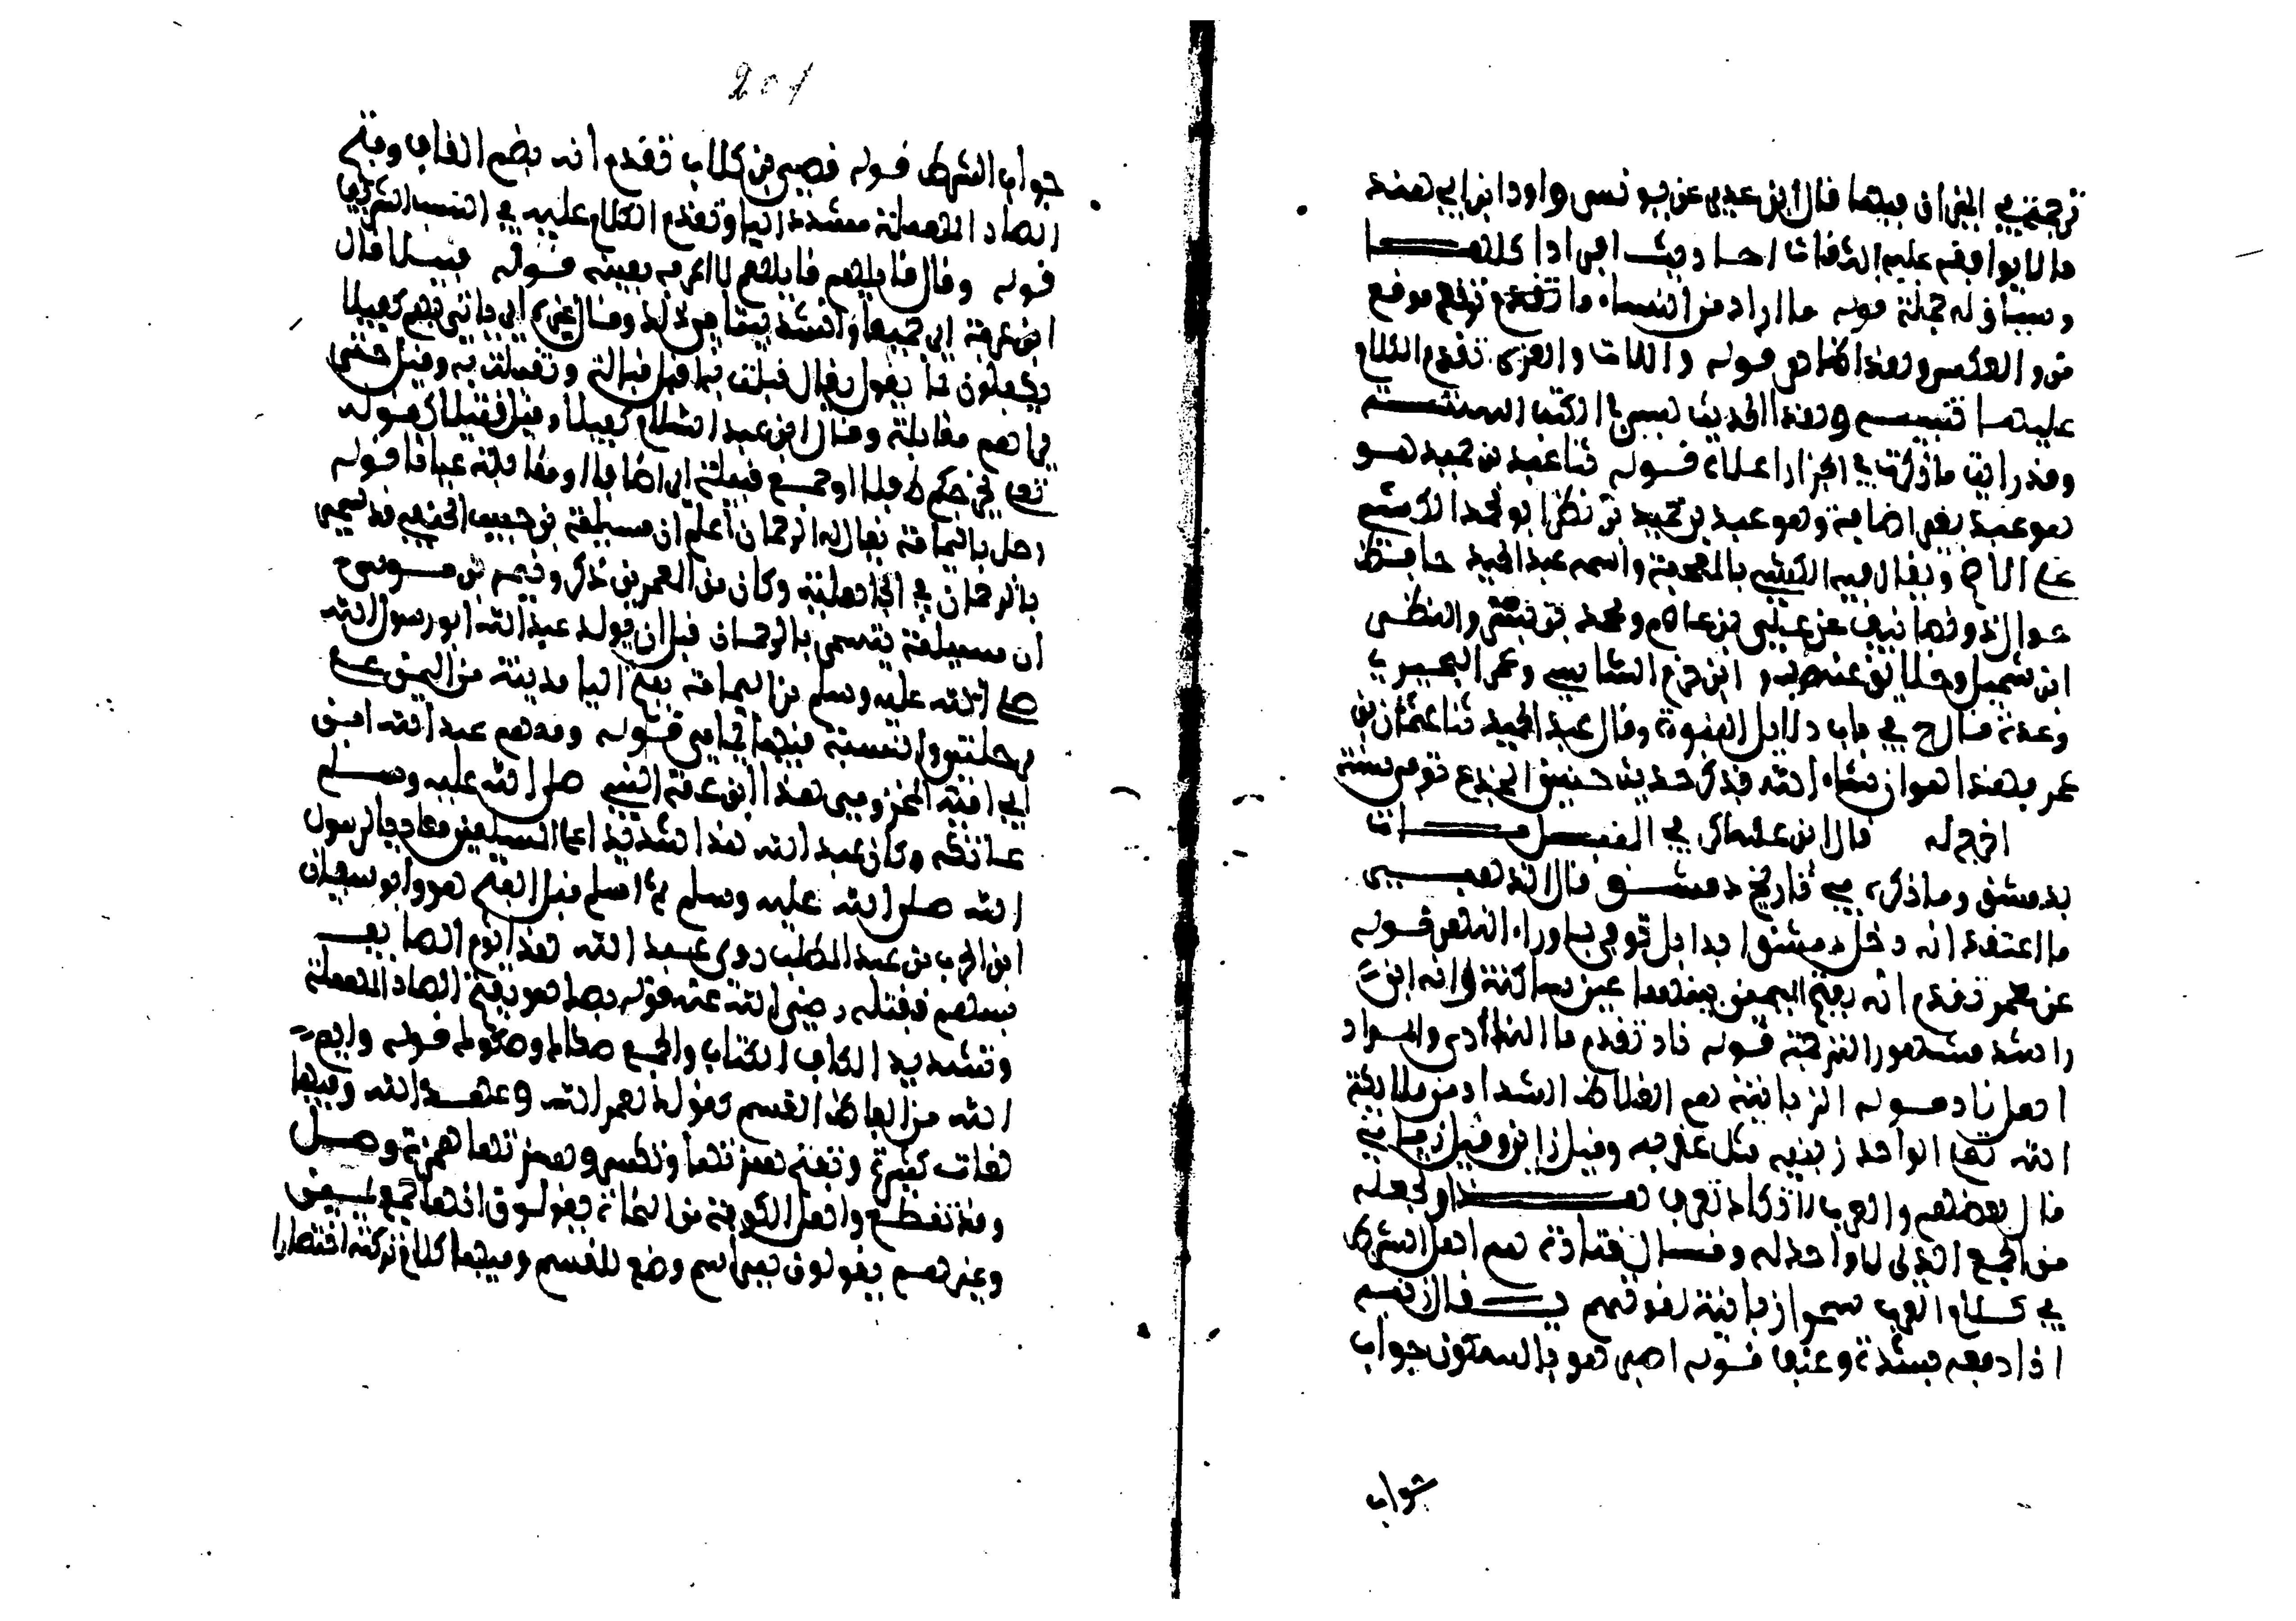 ترجمته في الميزان فيها قال ابن عدي عن يونس وداود ابن ابي هند
ما لا يوافقه عليه الثقات احاديث افراد كلها
وسياق له جملة قوله ما اراد من النساء ما تقدم
والعكس وهذا كما هو قوله واللات والعزى تقدم الكلام
عليهما تنبيه وهذا الحديث ليس في الكتب الستة
وقد رايت ما ذكرته في الجزء اعلاه قوله ثنا عبد بن حميد هو
هو عبد بغير اضافة وهو عبد بن حميد بن نصر ابو محمد الكشي
على الاصح ويقال فيه الكشي بالمعجمة واسمه عبد الحميد حافظ
جوال ذو تصانيف عن علي بن عاصم ومحمد بن بشر والنضر
ابن شميل وخلائق عنه م ت وابن خزيم الشاشي وعمر البجيري
وعدة قال خ في باب دلايل النبوة وقال عبد الحميد ثنا عثمان بن
عمر فهذا هو ان شاء الله فذكر حديث حنين الجذع توفي سنة
اخرج له قال ابن عساكر في
بدمشق وما ذكره في تاريخ دمشق قال الذهبي
ما اعتقد انه دخل دمشق ابدا بل توفي بما وراء النهر قوله
عن معمر تقدم انه بفتح الميمين بينهما عين ساكنة وانه ابن
راشد مشهور الترجمة قوله ناد تقدم ما النادي والمراد
اهل ناد قوله الزبانية هم الغلاظ الشداد من ملائكة
الله تعالى الواحد زبنية مثل عفرية وقيل زابن وقيل زباني
قال بعضهم والعرب لا تكاد تعرف هذا وتجعله
من الجمع الذي لا واحد له وقال قتادة هم اهل الشرط
في كلام العرب سموا زبانية لقوتهم يقال زبنه
اذا دفعه بشدة وعنف قوله اصبر هو بالسكون جواب
جواب
201
جواب الشرط قوله قصي بن كلاب تقدم انه بضم القاف وفتح
الصاد المهملة مشدد اليا وتقدم الكلام عليه في النسب الشريف
قوله وقال قايلهم قايلهم لا اعرفه بعينه قوله قبيلا قال
ابن عرفة اي جميعا وانشد بيتا في ذلك وقال غيره اي ياتي بهم كفيلا
يكفلون بما يقول يقال قبلت به اقبل قبالة وتقبلت به وقيل حتى
يراهم مقابلة وقال ابن عبد السلام كفيلا وقيل قتيلا كقوله
اوجمع قبيلة اي اصنافا او مقابلة عيانا قوله
رجل باليمامة يقال له الرحمان اعلم ان مسيلمة بن حبيب الحنفي قد تسمى
بالرحمان في الجاهلية وكان من المعمرين ذكر وثيمة بن موسى
ان مسيلمة تسمى بالرحمان قبل ان يولد عبد الله ابو رسول الله
صلى الله عليه وسلم من اليمامة بفتح اليا مدينة من اليمن على
مرحلتين والنسبة اليها يمامي قوله ومنهم عبد الله ابن
ابي امية المخزومي هذا ابن عمة النبي صلى الله عليه وسلم
عاتكة وكان عبد الله هذا شديدا على المسلمين معاديا لرسول
الله صلى الله عليه وسلم ثم اسلم قبل الفتح هو وابو سفيان
ابن الحرث بن عبد المطلب رمي عبد الله هذا يوم الطايف
بسهم فقتله رضي الله عنه قوله بصك هو بفتح الصاد المهملة
وتشديد الكاف الكتاب والجمع صكاك وصكوك قوله وايم
الله من الفاظ القسم كقولك لعمر الله وعهد الله وفيها
لغات كثيرة وتفتح همزتها وتكسر وهمزتها همزة وصل
وقد تقطع واهل الكوفة من النحاة يقولون انها جمع يمين
وغيرهم يقولون هي اسم وضع للقسم وفيها كلام تركته اختصارا